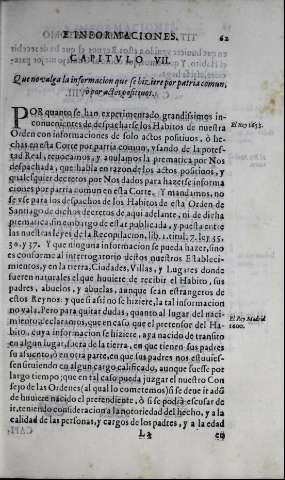 E INFORMACIONES. 62
CAPITVLO VII.
Que no valga la informacion que se hiziere por patria comun,
ò por actos positiuos.
POR quanto se han experimentado grandissimos in-
conuenientes de despacharse los Habitos de nuestra
Orden con informaciones de solo actos positiuos, ò he-
chas en esta Corte por patria comun, vsando de la potes-
tad Real, reuocamos, y anulamos la prematica por Nos
despachada, que habla en razon de los actos positiuos, y
qualesquier decretos por Nos dados para hazerse informa
ciones por patria comun en esta Corte. Y mandamos, no
se vse para los despachos de los Habitos de esta Orden de
Santiago de dichos decretos de aqui adelante, ni de dicha
prematica, sin embargo de estar publicada, y puesta entre
las nuestras leyes de la Recopilacion, lib. 1. titul. 7. ley 35.
36. y 37. Y que ninguna informacion se pueda hazer, sino
es conforme al interrogatorio destos nuestros Estableci-
mientos, y en la tierra, Ciudades, Villas, y Lugares donde
fueren naturales el que huuiere de recibir el Habito, sus
padres, abuelos, y abuelas, aunque sean estrangeros de
estos Reynos: y que si assi no se hiziere, la tal informacion
no vala. Pero para quitar dudas, quanto al lugar del naci-
miento, declaramos, que en caso que el pretensor del Ha-
bito, cuya informacion se hiziere, aya nacido de transito
en algun lugar, fuera de la tierra, en que tienen sus padres
su assiento, ò en otra parte, en que sus padres nos estuuies-
sen siruiendo en algun cargo calificado, aunque fuesse por
largo tiempo; que en tal caso pueda juzgar el nuestro Con
sejo de las Ordenes (al qual lo cometemos) si se deue ir adõ
de huuiere nacido el pretendiente, ò si se podrà escusar de
ir, teniendo consideracion a la notoriedad del hecho, y a la
calidad de las personas, y cargos de los padres, y a la edad
en
El Rey 1653.
El Rey Madrid
1600.